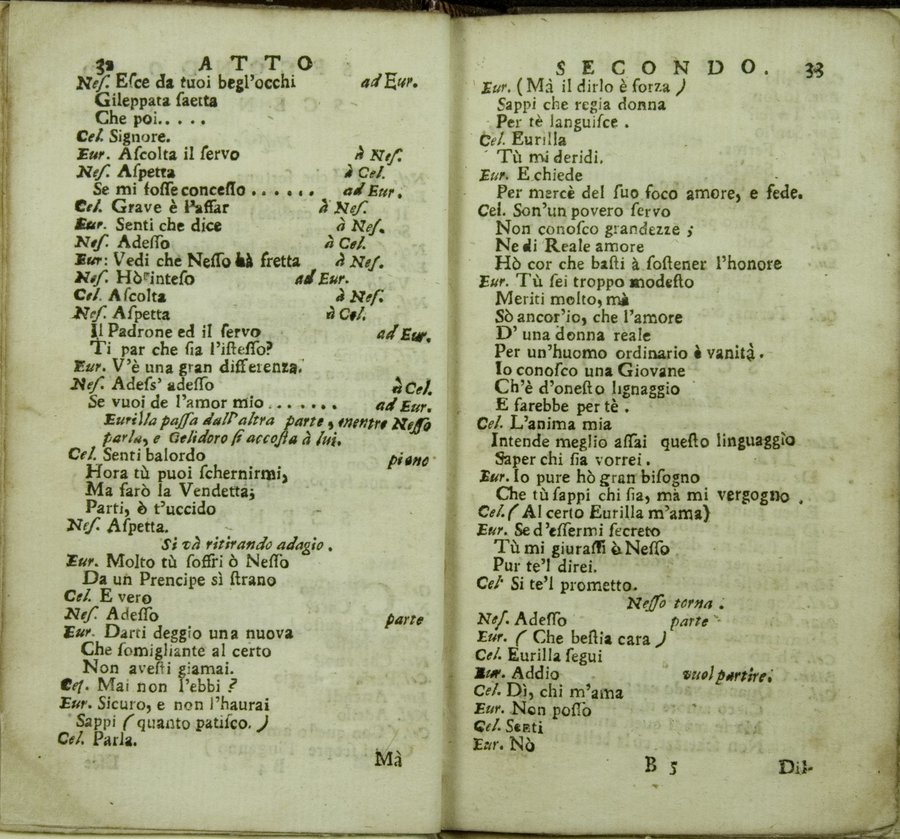 32 ATTO
Neſ. Eſce da tuoi begl'occhi ad Eur.
Gileppata ſaetta
Che poi.....
Cel. Signore.
Eur. Aſcolta il ſervo à Neſ.
Neſ. Aſpetta à Cel.
Se mi foſſe conceſſo ...... ad Eur.
Cel. Grave è l'affar à Neſ.
Eur. Senti che dice à Neſ.
Neſ. Adeſſo à Cel.
Eur: Vedi che Neſſo hà fretta à Neſ.
Neſ. Hò inteſo ad Eur.
Cel. Aſcolta à Neſ.
Neſ. Aſpetta à Cel.
Il Padrone ed il ſervo ad Eur.
Ti par che ſia l'iſteſſo?
Eur. V'è una gran differenza.
Neſ. Adeſs' adeſſo à Cel.
Se vuoi de l'amor mio ....... ad Eur.
Eurilla paſſa dall'altra parte, mentre Neſſo
parla, e Celidoro ſi accoſta à lui.
Cel. Senti balordo piano
Hora tù puoi ſchernirmi,
Ma farò la Vendetta;
Parti, ò t'uccido
Neſ. Aſpetta.
Si và ritirando adagio.
Eur. Molto tù ſoffri ò Neſſo
Da un Prencipe sì ſtrano
Cel. E vero
Neſ. Adeſſo parte
Eur. Darti deggio una nuova
Che ſomigliante al certo
Non aveſti giamai.
Cel. Mai non l'ebbi ?
Eur. Sicuro, e non l'haurai
Sappi (quanto patiſco.)
Cel. Parla.
Mà
SECONDO. 33
Eur. (Mà il dirlo è forza)
Sappi che regia donna
Per tè languiſce .
Cel. Eurilla
Tù mi deridi.
Eur. E chiede
Per mercè del ſuo foco amore, e fede.
Cel. Son'un povero ſervo
Non conoſco grandezze ;
Ne di Reale amore
Hò cor che baſti à ſoſtener l'honore
Eur. Tù ſei troppo modeſto
Meriti molto, mà
Sò ancor'io, che l'amore
D' una donna reale
Per un'huomo ordinario è vanità.
Io conoſco una Giovane
Ch'è d'oneſto lignaggio
E farebbe per tè .
Cel. L'anima mia
Intende meglio aſſai queſto linguaggio
Saper chi ſia vorrei.
Eur. Io pure hò gran biſogno
Che tù ſappi chi ſia, mà mi vergogno .
Cel. (Al certo Eurilla m'ama)
Eur. Se d'eſſermi ſecreto
Tù mi giuraſſi ò Neſſo
Pur te'l direi.
Cel. Si te'l prometto.
Neſſo torna .
Neſ. Adeſſo parte
Eur. (Che beſtia cara)
Cel. Eurilla ſegui
Eur. Addio vuol partire.
Cel. Dì, chi m'ama
Eur. Non poſſo
Cel. Senti
Eur. Nò
B 5 Dil-